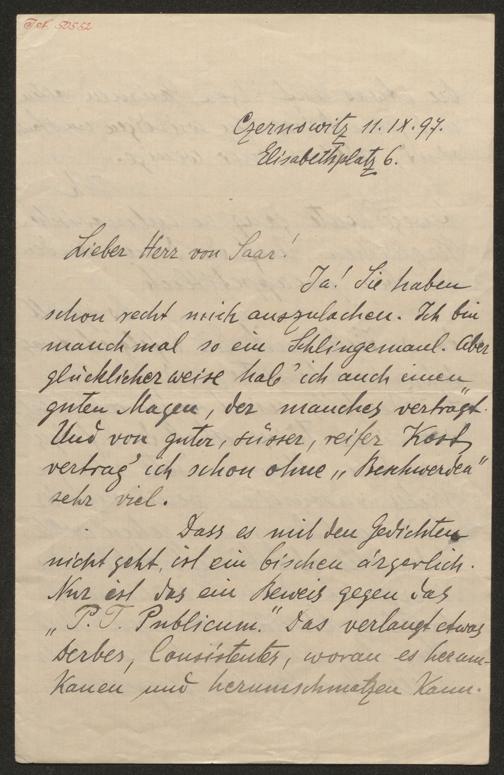 J.N. 50552
Czernowitz 11.IX.97.
Elisabethplatz 6.
Lieber Herr von Saar!
Ja! Sie haben
schon recht mich auszulachen. Ich bin
manchmal so ein Schlingemaul. Aber
glücklicherweise hab' ich auch einen
guten Magen, der manches verträgt.
Und von guter, süsser, reifer Kost,
vertrag' ich schon ohne „Beschwerden"
sehr viel.
Dass es mit den Gedichten
nicht geht, ist ein bischen ärgerlich.
Nur ist das ein Beweis gegen das
„P. T. Publicum." Das verlangt etwas
Derbes, Consistentes, woran es herum-
kauen und herumschmatzen kann.